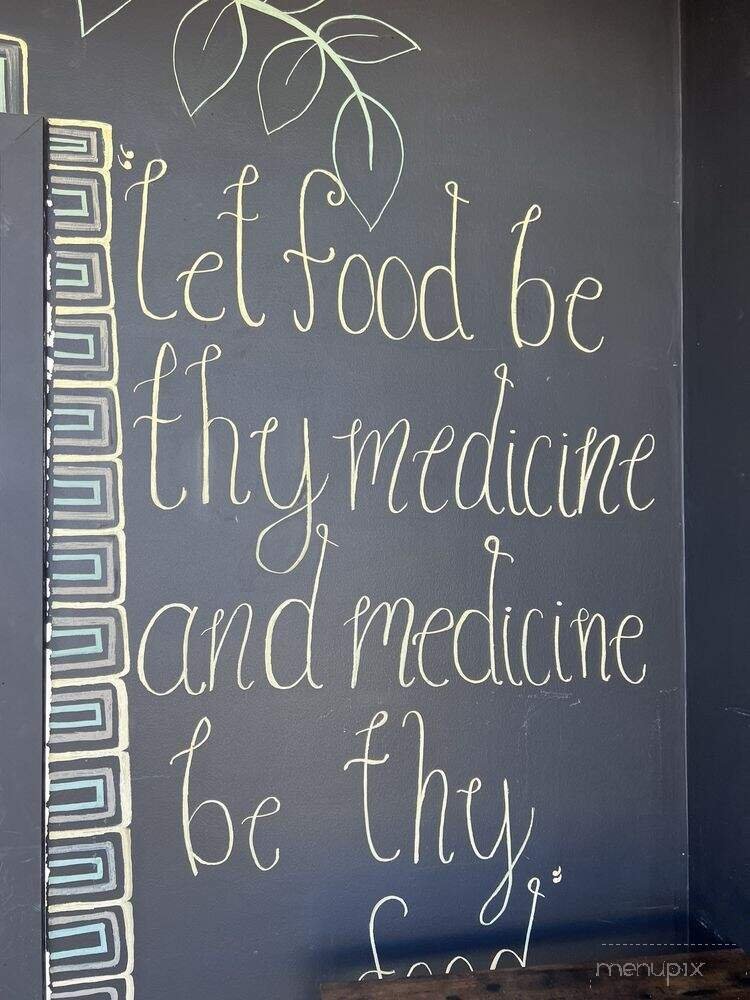 "let food be
thy medicine
and medicine
be thy
food"
menupix